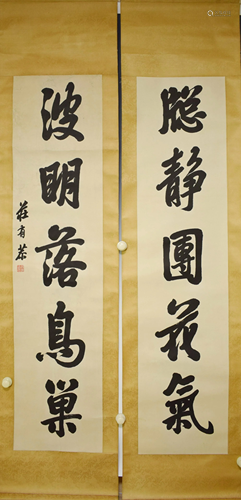 牎静團花氣
波明落鳥巢
莊有恭